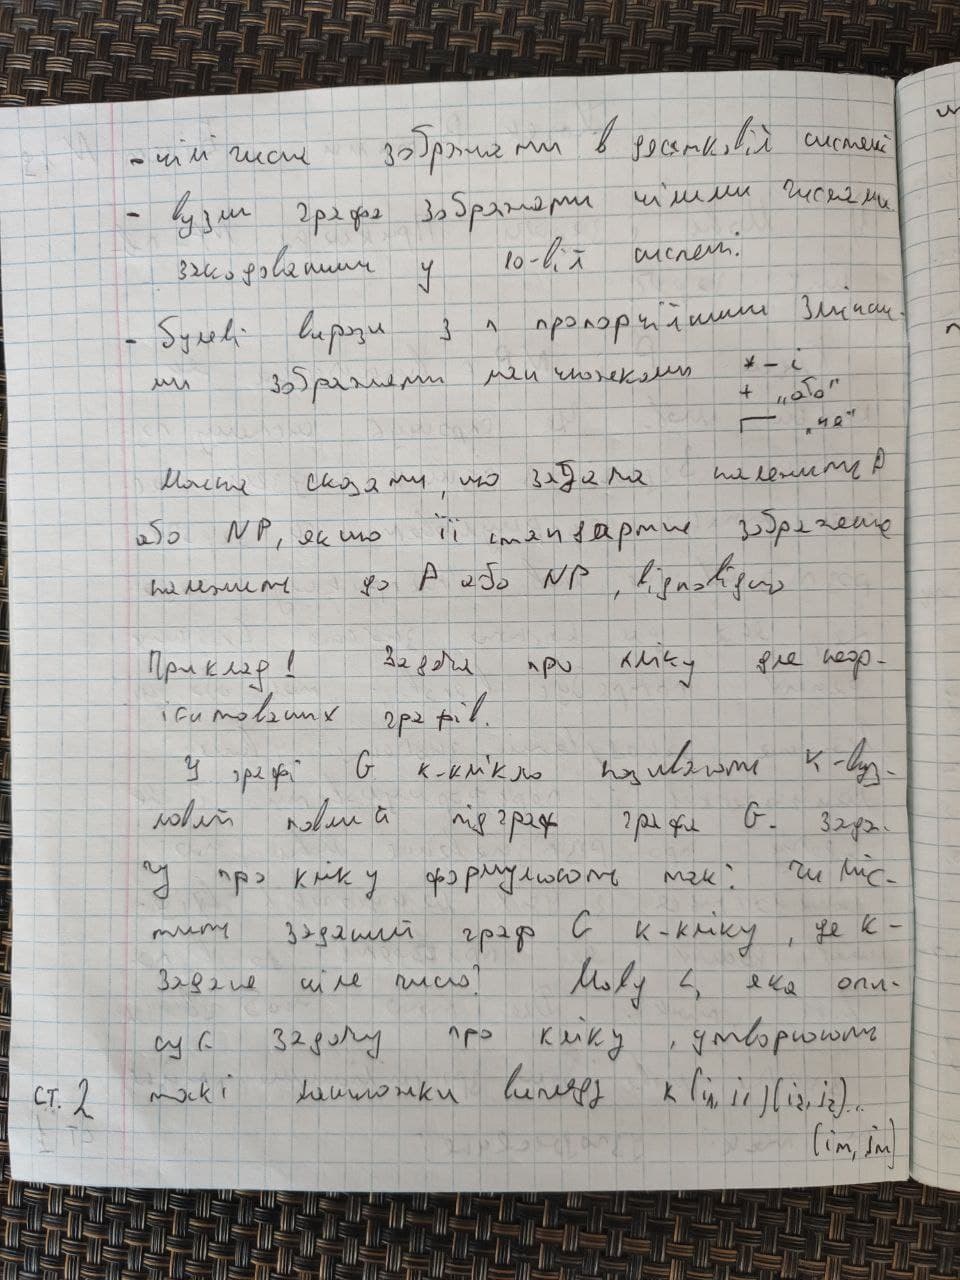 - цілі числа зображати в десятковій системі
- вузли графа зображати цілими числами
закодованими у 10-вій системі.
- булеві вирази з n пропорційними змінни-
ми зображаємо ланцюжками * - і
+ „або"
„не"
Можна сказати, що задача належить P
або NP, якщо її стандартне зображення
належить до P або NP, відповідно
Приклад! Задача про кліку для неор-
ієнтованих графів.
У графі G к-клікою називають к-вуз-
ловий повний підграф графа G. Зада-
чу про кліку формулюють так: Чи міс-
тить заданий граф G к-кліку, де к -
задане ціле число? Мову L, яка опи-
сує задачу про кліку, утворюють
такі ланцюжки вигляду к(i1, j1)(i2, j2)...
(im, jm)
ст. 2